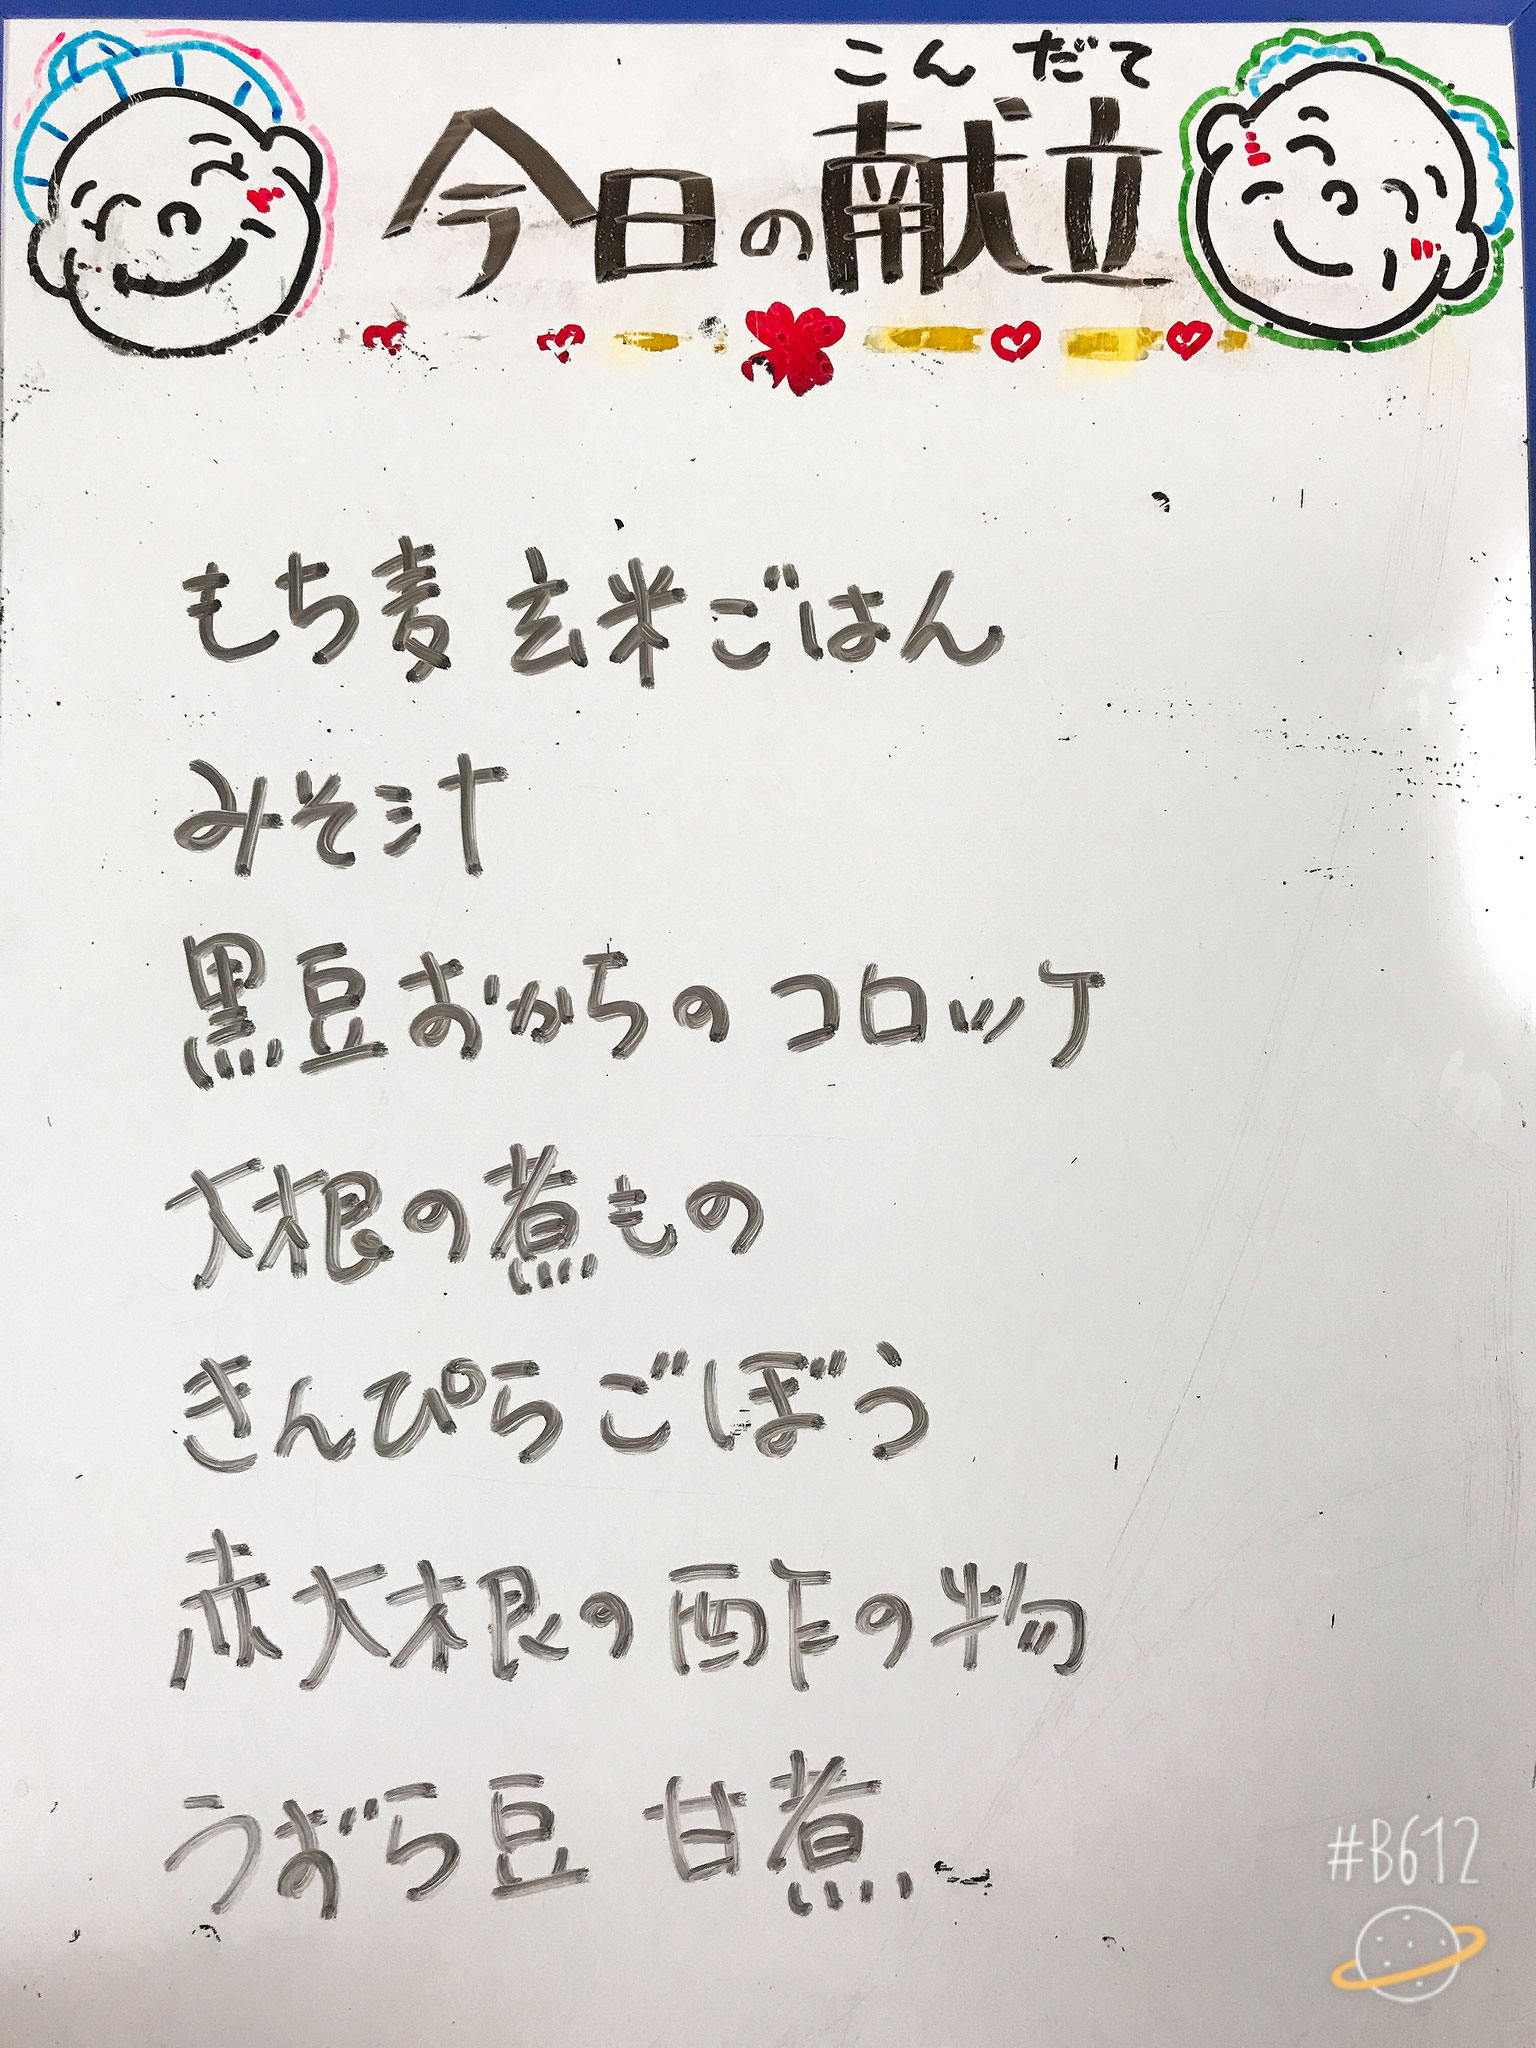 こんだて
今日の献立
もち麦 玄米ごはん
みそ汁
黒豆おからのコロッケ
大根の煮もの
きんぴらごぼう
赤大根の酢の物
うずら豆 甘煮
#B612